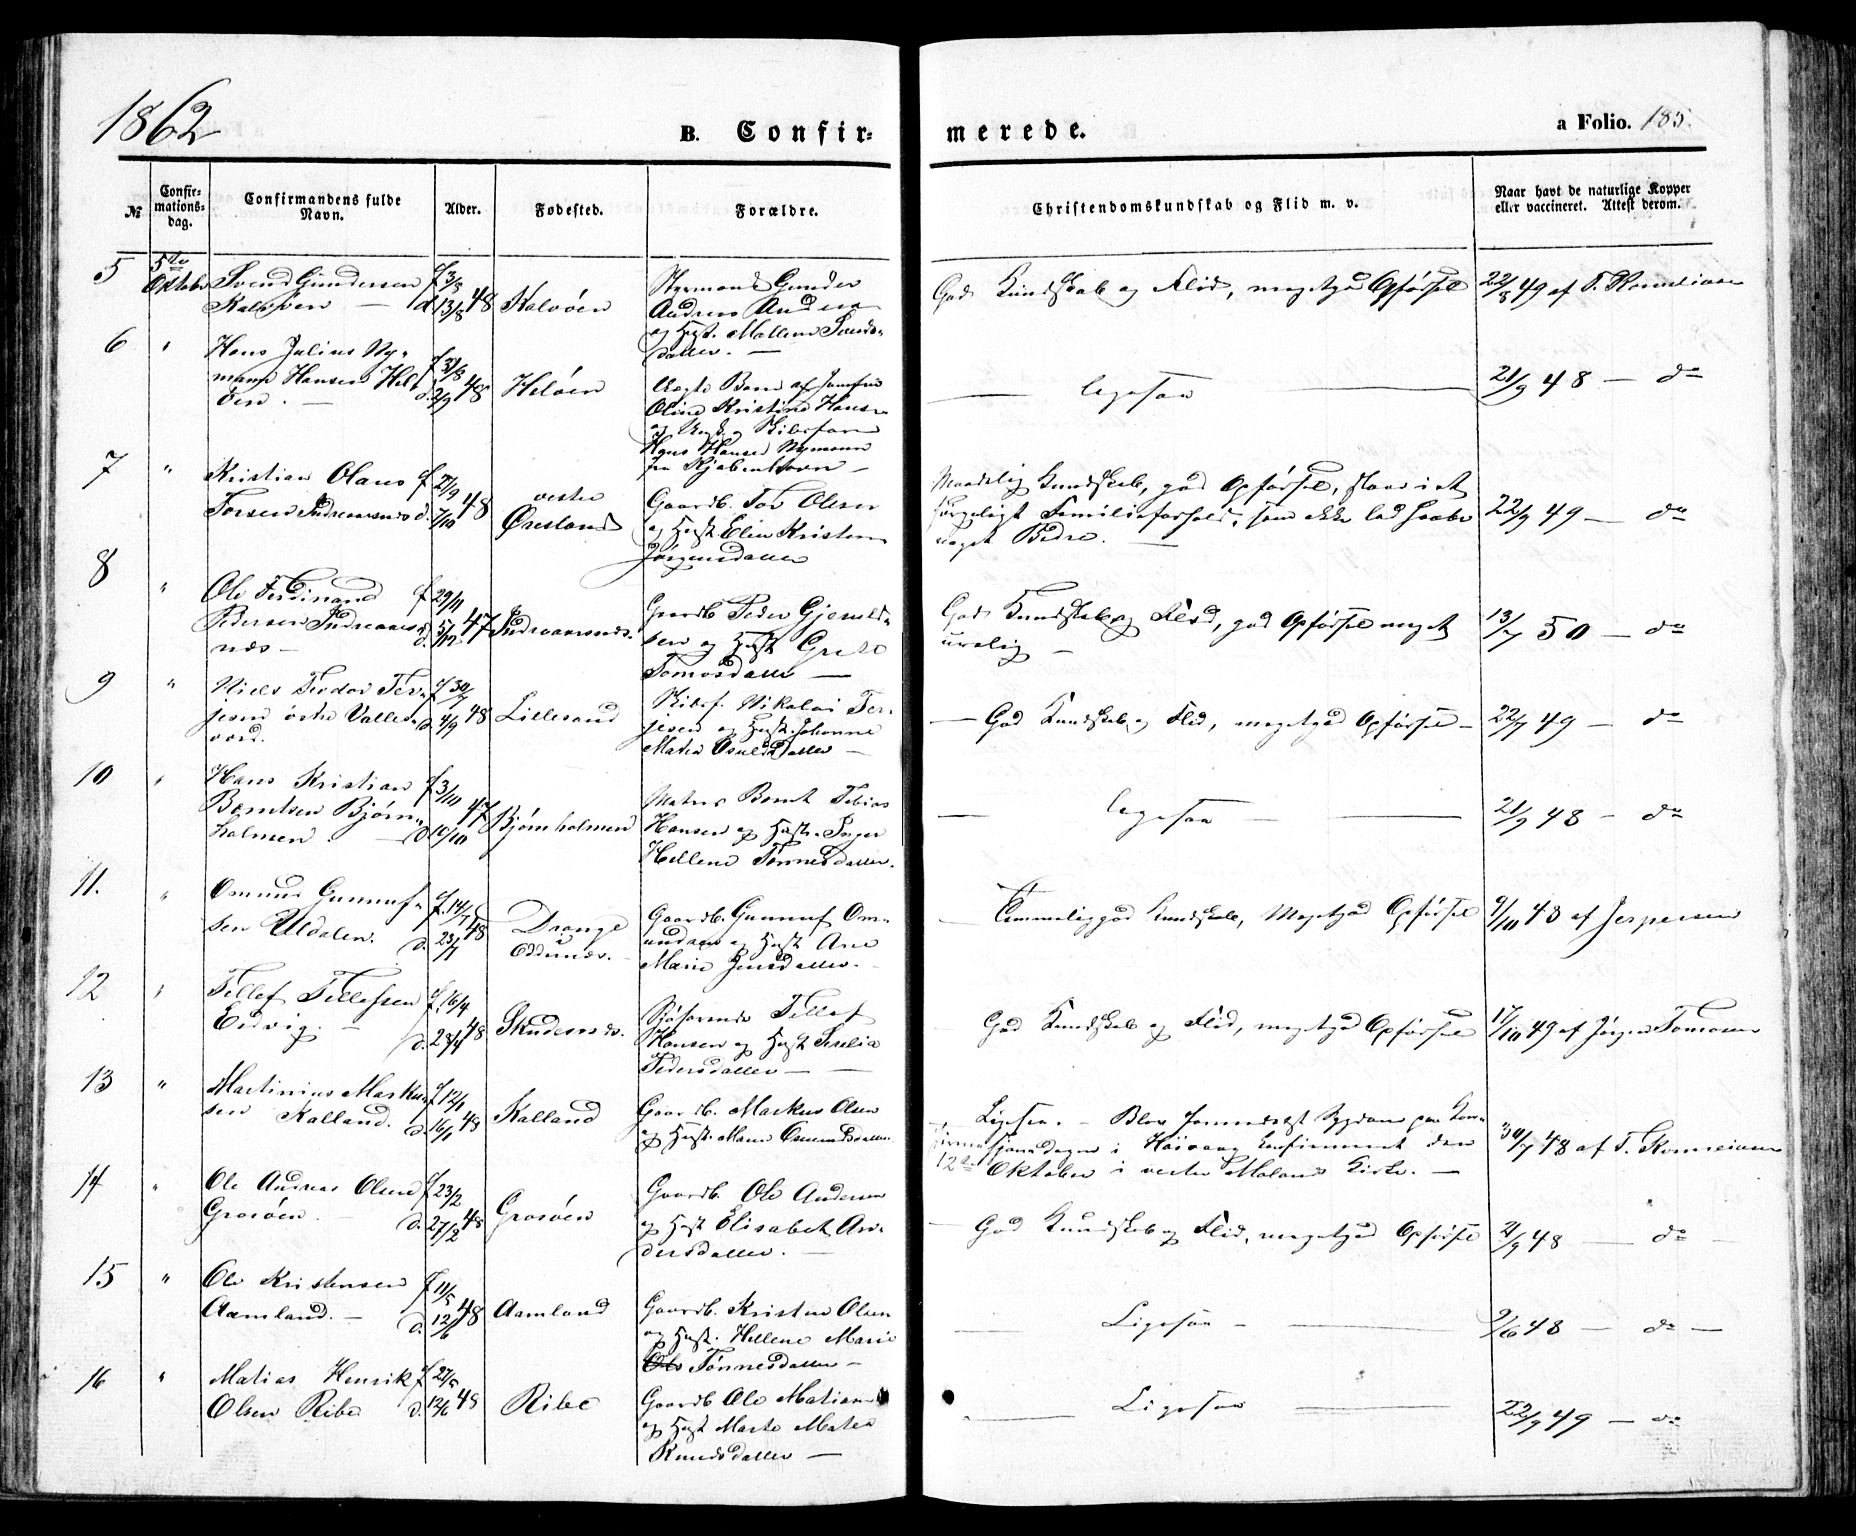 1862
B. Confir-
merede.
a Folio. 185.
№
Confir-
mations-
dag.
Confirmandens fulde
Navn.
Alder.
Fødested.
Forældre.
Christendomskundskab og Flid m. v.
Naar havt de naturlige Kopper
eller vaccineret. Attest derom.
5
5te
Oktober
Svend Gundersen
Kalvøen —
f. 3/3
d. 13/8 48
Kalvøen
Styrmand Gunder
Andreas
og Hust. Mallene Svends-
datter. —
God Kundskab og Flid, megetgod Opførsel
22/8 49 af T. Korneliusen
6
"
Hans Julius Ny-
mann Hansen Hel-
øen. —
f. 31/8
d. 2/9 48
Heløen
Uægte Barn af
Oline Kristine Hans-
og Skibsfører
Hans Hansen Nymann
fra Kjøbenhavn —
— ligesaa —
21/9 48 — do
7
"
Kristian Olaus
Torsen Indreaasnæs
f. 27/9
d. 7/10 48
vestre
Øresland
Gaardb. Tor Olsen
og Hust. Elen Kristine
Jørgensdatter
Maadelig Kundskab, god Opførsel, staar i et
sørgeligt Familieforhold, som ikke lod haabe
noget Bedre. —
22/9 49 — do
8
"
Ole Ferdinand
Pedersen Indreaas-
næs —
f. 29/11
d. 5/12 47
Indreaasnæs.
Gaardb. Peder Gjeruld-
sen og Hust. Grete
Tomasdatter —
God Kundskab og Flid, god Opførsel meget
urolig —
13/7 50 — do
9
"
Niels Teodor Ter-
jesen østre Valles-
værd.
f. 30/7
d. 4/9 48
Lillesand
Skibsf. Nikolai Ter-
jesen og Hust. Johanne
Maria Osuldsdatter —
— God Kundskab og Flid, megetgod Opførsel —
22/7 49 — do
10
"
Hans Kristian
Berntsen Bjørn-
holmen. —
f. 3/10
d. 10/10 47
Bjørnholmen
Matros Bernt Tobias
Hansen og Hust. Inger
Hellene Tønnesdatter.
— ligesaa —
21/9 48 — do
11.
"
Omund Gunnuf-
sen Uldalen.
f. 14/7
d. 23/7 48
Drange
i
Eddunæs. —
Gaardb. Gunnuf Om-
undsen og Hust Ane
Marie Jensdatter. —
— Temmeliggod Kundskab, Megetgod Opførsel
9/10 48 af Jespersen
12
"
Tellef Tellefsen
Eidvig. —
f. 16/4
d. 23/4 48
Skudesnæs.
Sjøfarende Tellef
Hansen og Hust Serelia
Pedersdatter —
— God Kundskab og Flid, megetgod Opførsel
17/10 49 af Jørgen Tomasen
13
"
Martinius Marku-
sen Kalland.
f. 12/1
d. 16/1 48
Kalland
Gaardb. Markus Olsen
og Hust. Maren Omundsdatter
Ligesaa. — Blev formedelst Sygdom paa Kon-
firma- sjonsdagen i Høivaag konfirmeret den
12te Oktober i vestre Molands Kirke. —
30/7 48 af T. Korneliusen
14
"
Ole Andreas Olsen
Grosøen. —
f. 23/2
d. 27/2 48
Grosøen
Gaardb. Ole Andersen
og Hust Elisabet An-
dersdatter. —
— God Kundskab og Flid, megetgod Opførsel
21/9 48 — do —
15
"
Ole Kristensen
Aamland. —
f. 11/5
d. 12/6 48
Aamland
Gaardb. Kristen Olsen
og Hust. Hellene Marie
Tønnesdatter —
— Ligesaa —
9/6 48 — do —
16
"
Matias Henrik
Olsen Ribe
f. 27/5
d. 12/6 48
Ribe
Gaardb Ole Matias
og Hust Marte Matea
Knudsdatter —
— Ligesaa —
22/9 49 — do